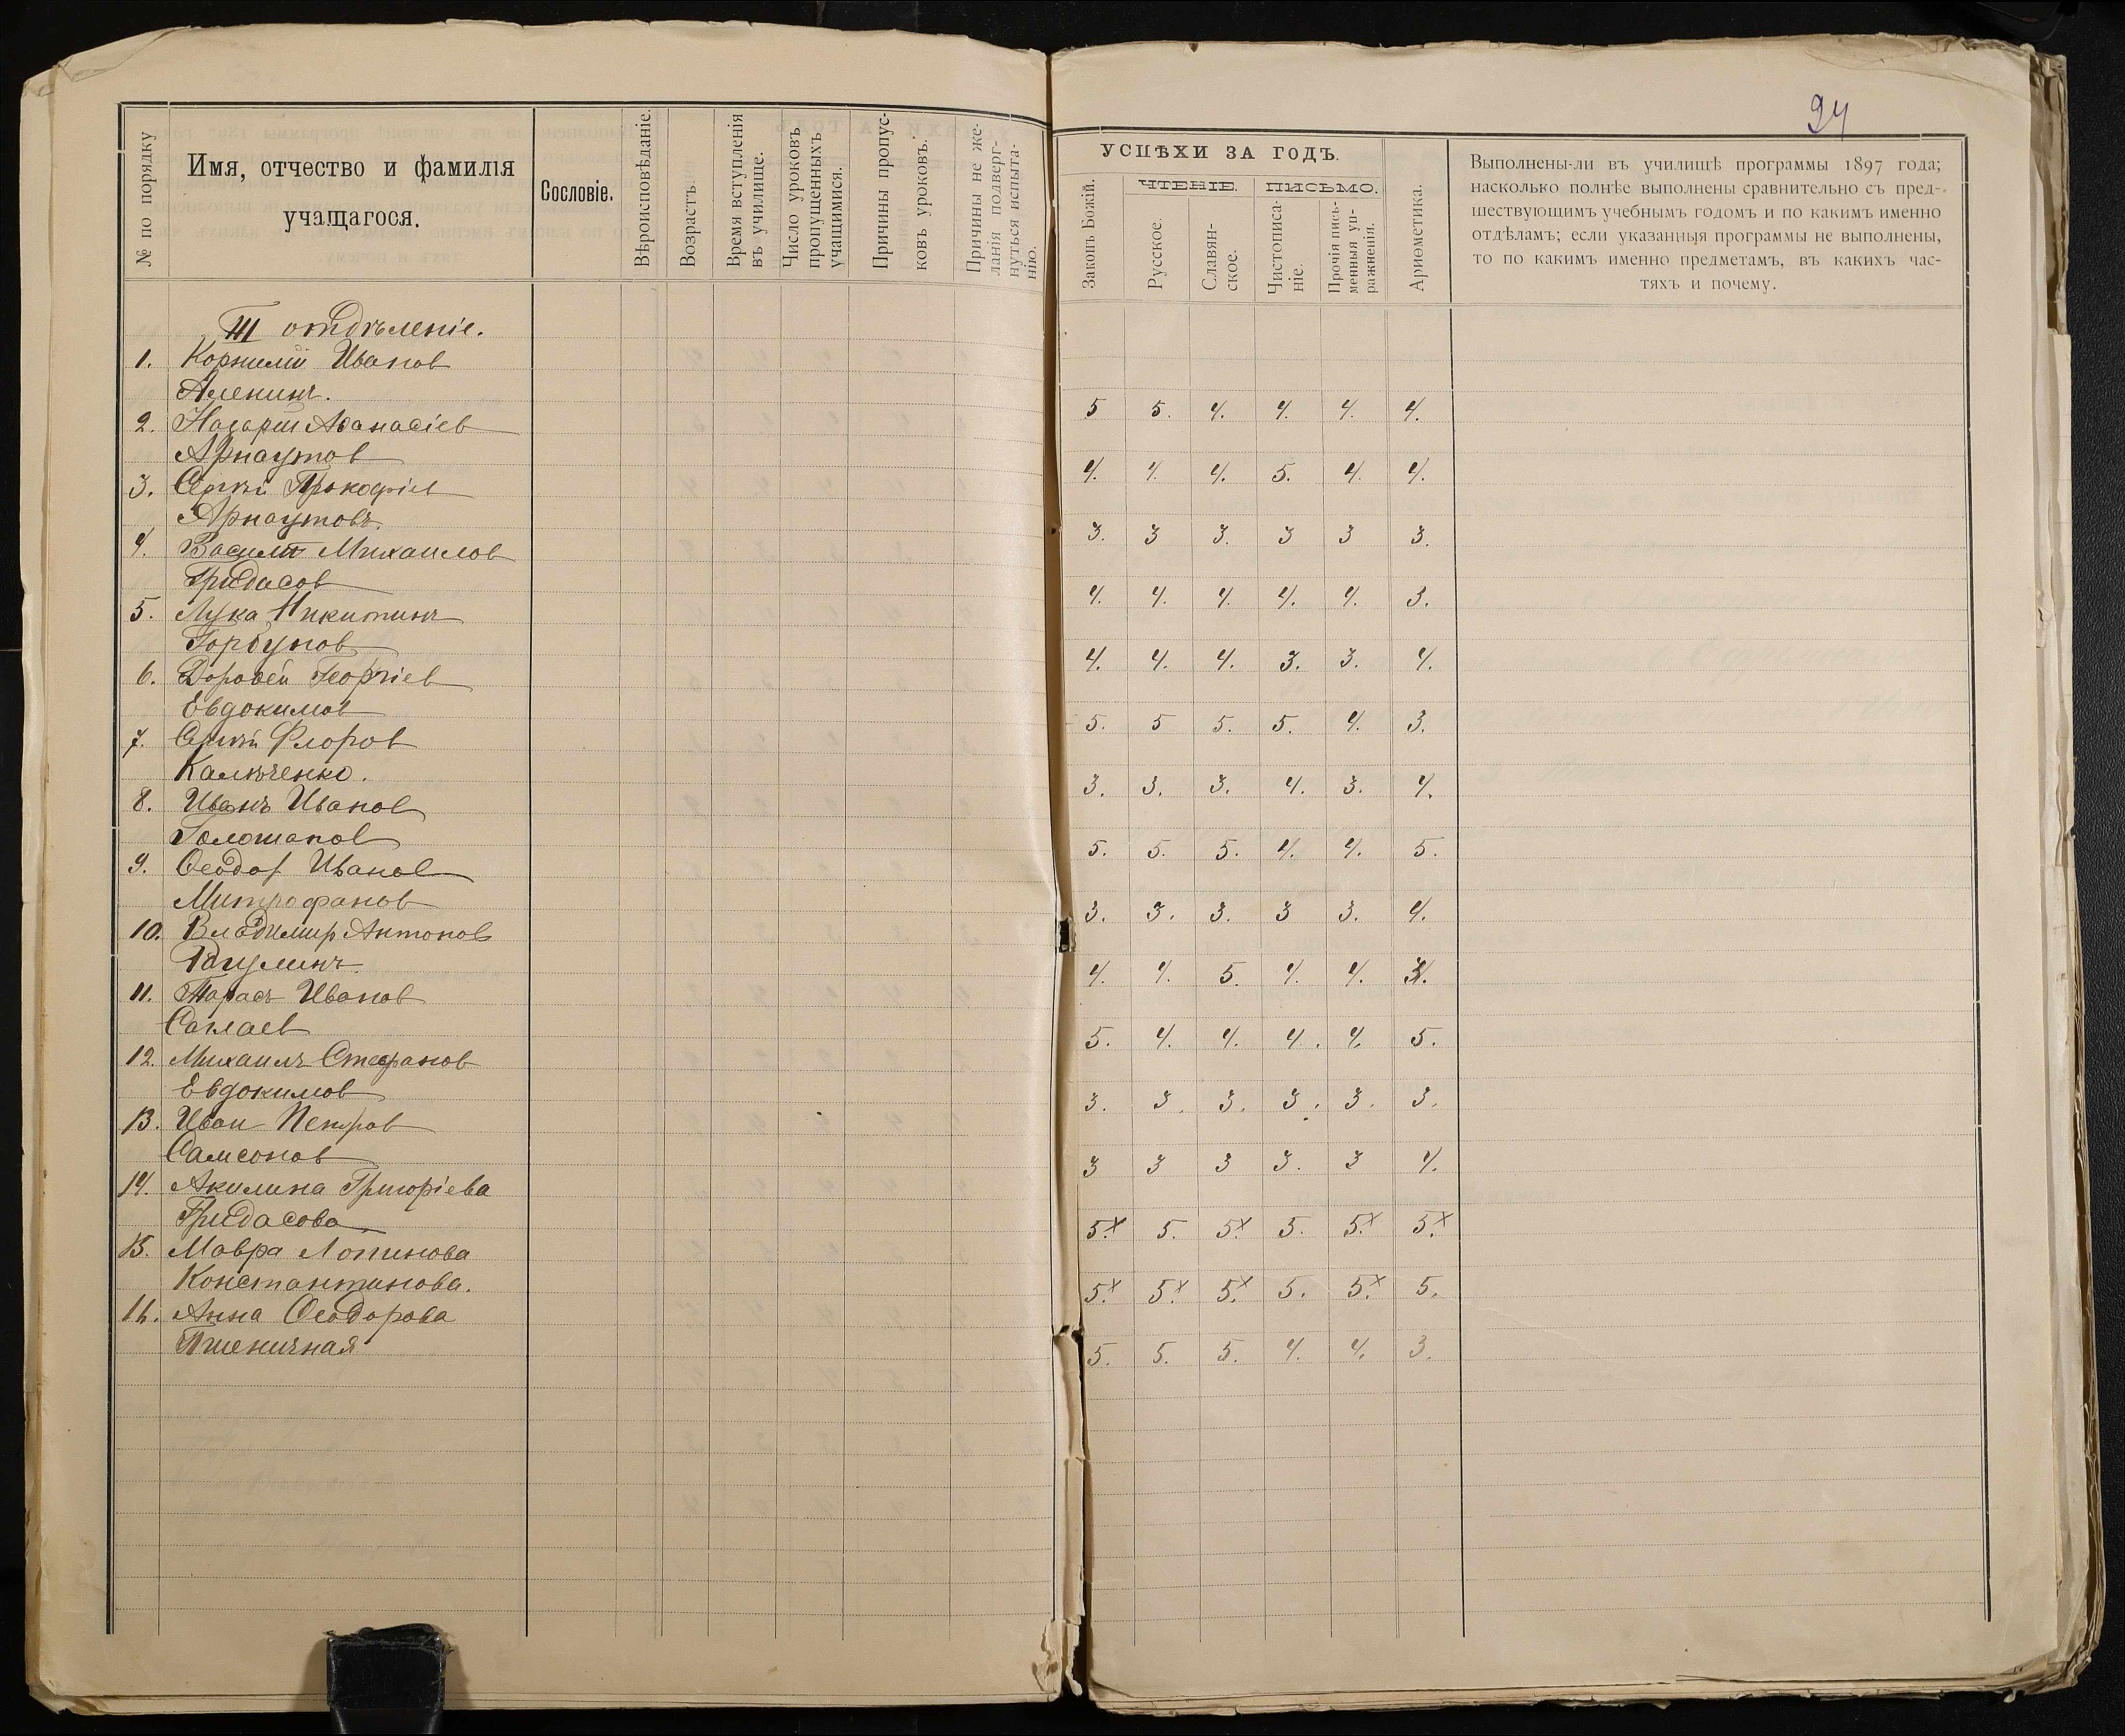 24
№ по порядку
Имя, отчество и фамилія
учащагося.
Сословіе.
Вѣроисповѣданіе.
Возрастъ.
Время вступленія
въ училище.
Число уроковъ
пропущенныхъ
учащимися.
Причины пропус-
ковъ уроковъ.
Причины не же-
ланія подверг-
нуться испыта-
нію.
УСПѢХИ ЗА ГОДЪ.
Законъ Божій.
ЧТЕНІЕ.
Русское.
Славян-
ское.
ПИСЬМО.
Чистописа-
ніе.
Прочія пись-
менныя уп-
ражненія.
Ариѳметика.
Выполнены-ли въ училищѣ программы 1897 года;
насколько полнѣе выполнены сравнительно съ пред-
шествующимъ учебнымъ годомъ и по какимъ именно
отдѣламъ; если указанныя программы не выполнены,
то по какимъ именно предметамъ, въ какихъ час-
тяхъ и почему.
III отдѣленіе.
1. Корнилій Иванов
Аленинъ. 5 5. 4. 4. 4. 4.
2. Назарій Аѳанасіев
Арнаутов 4. 4. 4. 5. 4. 4.
3. Сергѣй Прокофіев
Арнаутовъ. 3. 3 3. 3 3 3.
4. Василій Михаилов
Гридасов 4. 4. 4. 4. 4. 3.
5. Лука Никитинъ
Горбунов 4. 4. 4. 3. 3. 4.
6. Дороѳей Георгіев
Евдокимов 5. 5 5. 5. 4. 3.
7. Сергѣй Флоров
Калюченко. 3. 3. 3. 4. 3. 4.
8. Иванъ Иванов
Голошапов 5. 5. 5. 4. 4. 5.
9. Ѳеодор Иванов
Митрофанов 3. 3. 3. 3 3. 4.
10. Владимир Антонов
4. 4. 5. 4. 4.
11. Тарасъ Иванов
5. 4. 4. 4. 4. 5.
12. Михаилъ Стефанов
Евдокимов 3. 3. 3. 3. 3. 3.
13. Иван Петров
Самсонов 3 3 3 3. 3 4.
14. Акилина Григоріева
Гридасова 5.x 5. 5.x 5. 5.x 5.x
15. Мавра Логинова
Константинова. 5.x 5.x 5.x 5. 5.x 5.
16. Анна Ѳеодорова
Пшеничная 5. 5. 5. 4. 4. 3.